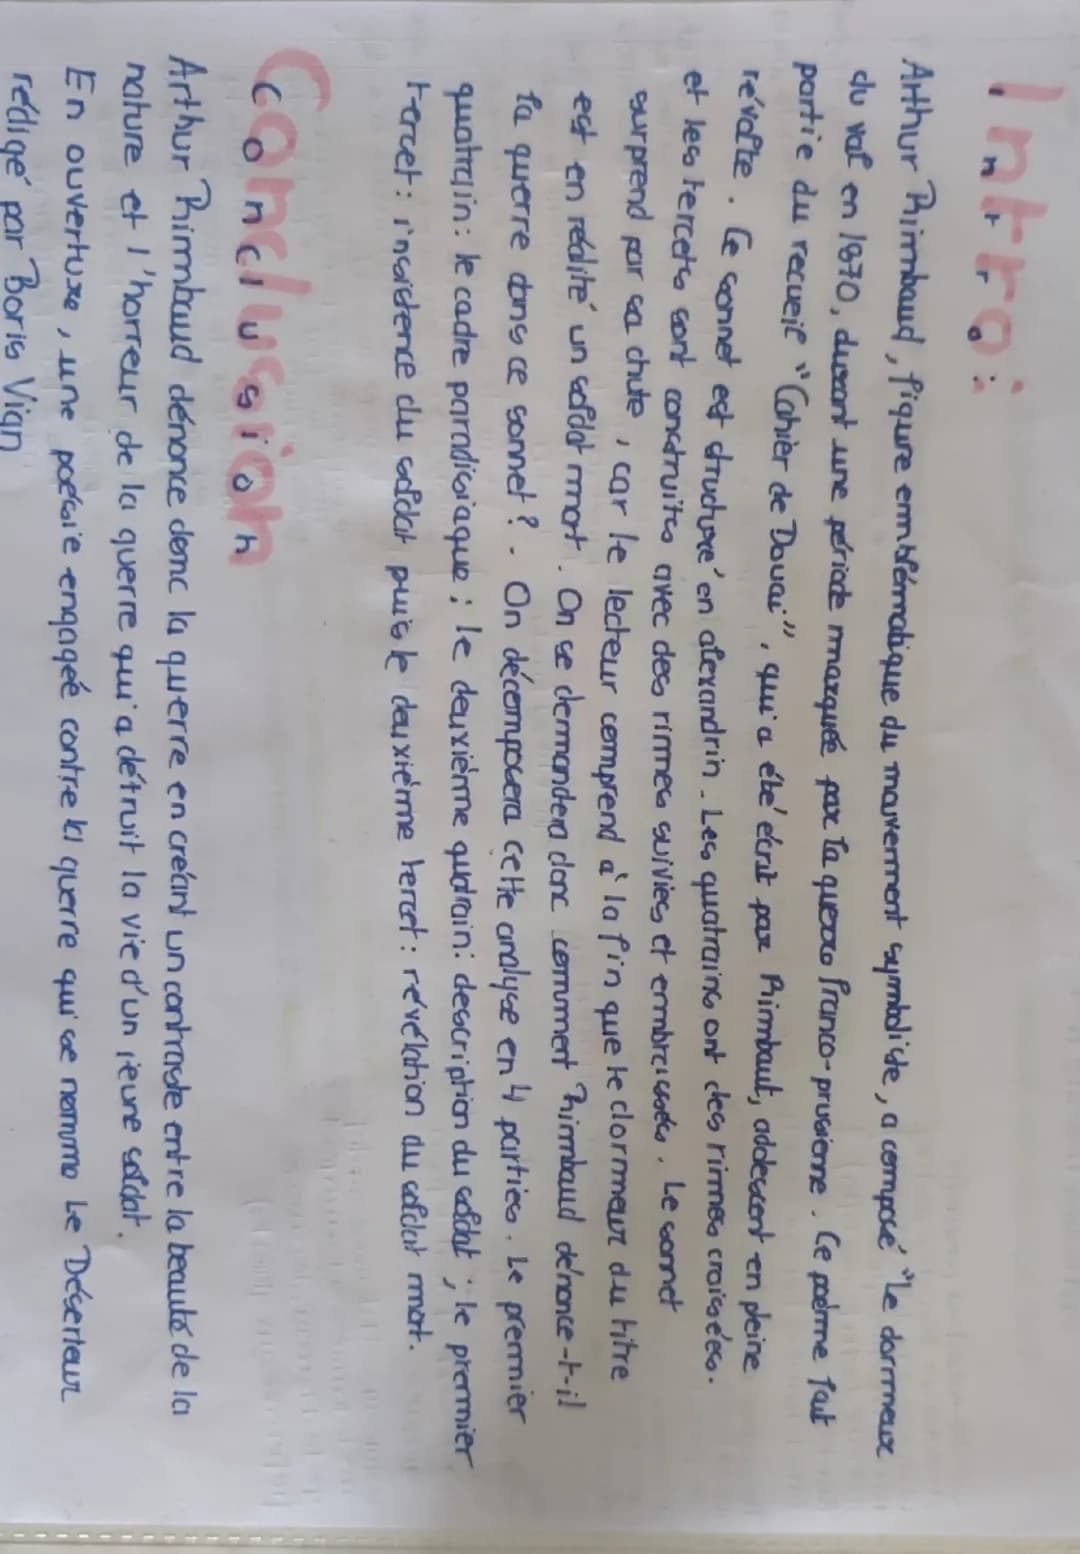 Intro:
Intro:
Arthur Rimbaud, figure emblématique du mouvement symboliste, a composé "Le dormeur
du val en 1870, durant une période marquée par la guerre franco-prussienne. Ce poème fait
partie du recueil "Cahier de Douai", qui a été écrit par Rimbaut, adolescent en pleine
révolte. Ce sonnet est structuré en alexandrin. Les quatrains ont des rimes croisées.
et les tercets sont construits avec des rimes suivies et embrassées. Le sonnet
surprend par sa chute, car le lecteur comprend à la fin que le dormeur du titre
est en réalité un soldat mort. On se demandera donc comment Rimbaud dénonce-t-il
la guerre dans ce sonnet?. On décomposera cette analyse en 4 parties. Le premier
quatrain: le cadre paradisiaque; le deuxième quatrain: description du soldat; le premier
tercet: insistence du soldat puis le deuxième tercet: révélation du soldat mort.
Conclusion
Conclusion
Arthur Rimbaud dénonce donc la guerre en créant un contraste entre la beauté de la
nature et l'horreur de la guerre qui a détruit la vie d'un jeune soldat.
En ouverture, une poésie engagée contre la guerre qui se nomme Le Déserteur
rédigé par Boris Vian